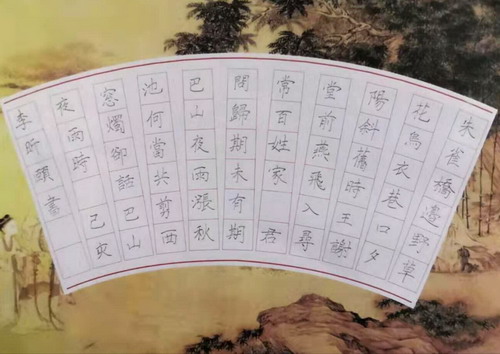 朱雀橋邊野草
花烏衣巷口夕
陽斜舊時王謝
堂前燕飛入尋
常百姓家 君
問歸期未有期
巴山夜雨漲秋
池何當共剪西
窓燭卻話巴山
夜雨時 己亥
李昕書